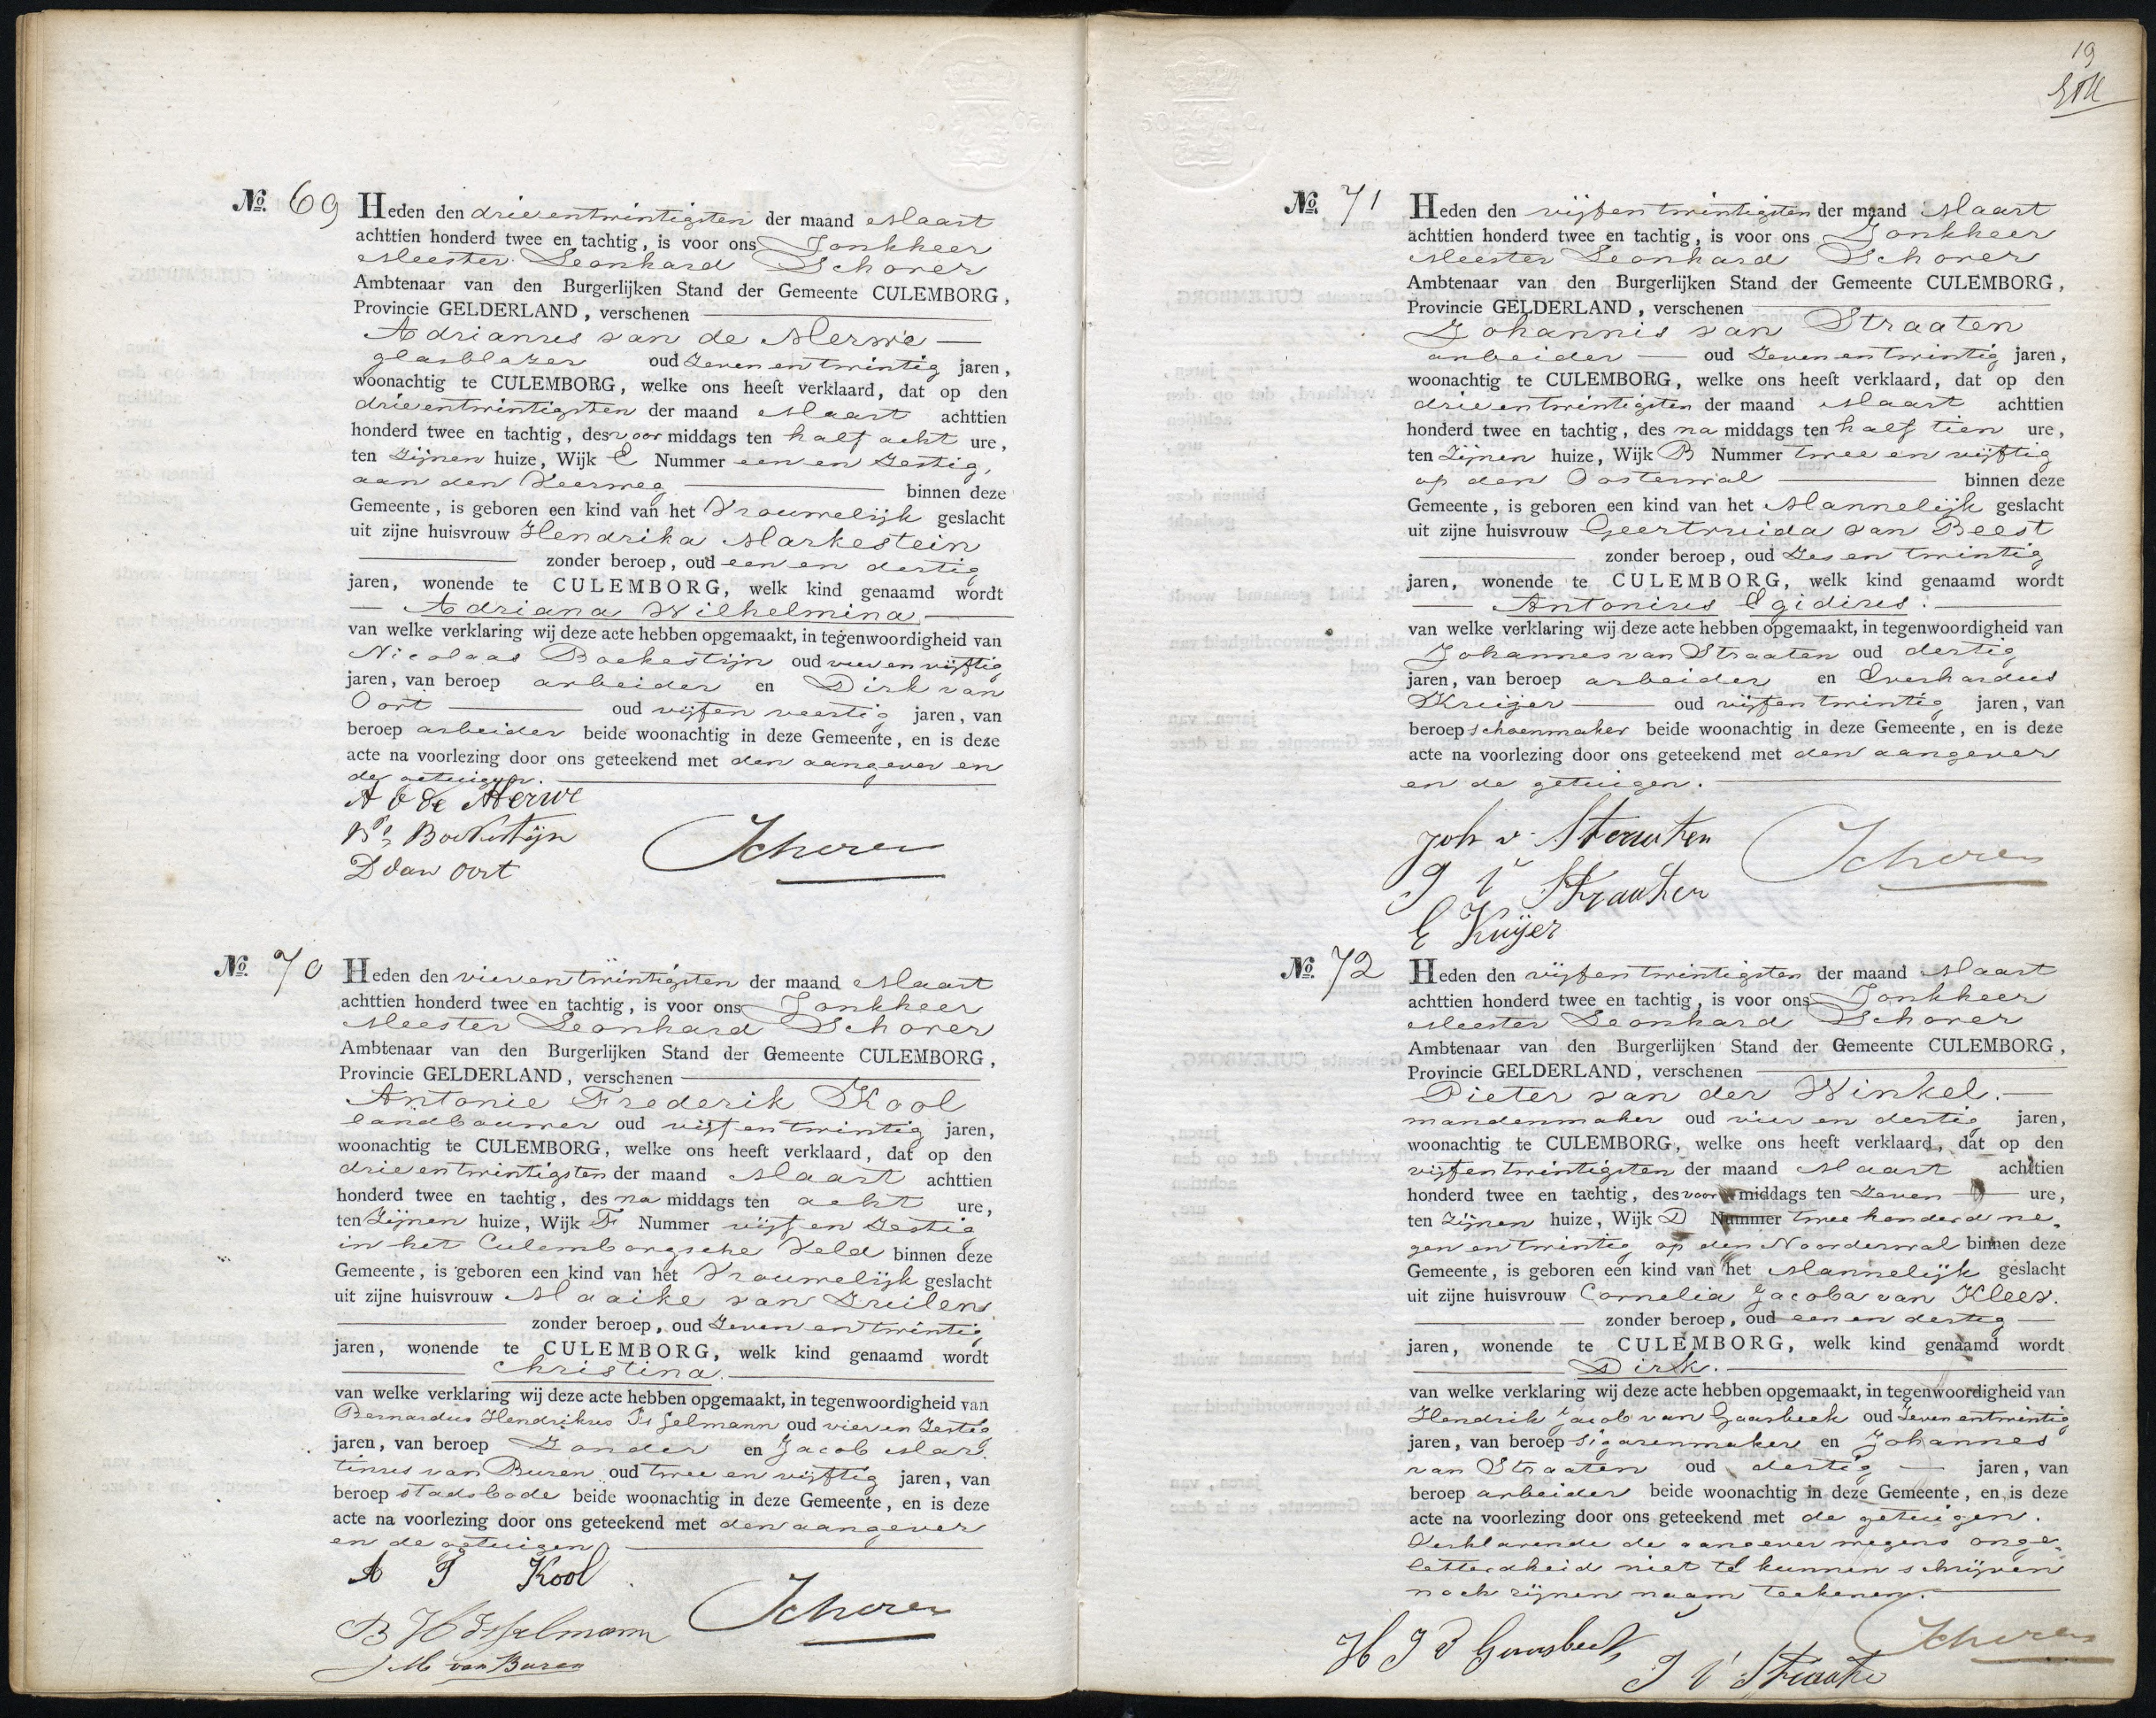 No. 69 Heden den drieentwintigsten der maand Maart
achttien honderd twee en tachtig, is voor ons Jonkheer
Meester Leonhard Schorer
Ambtenaar van den Burgerlijken Stand der Gemeente CULEMBORG,
Provincie GELDERLAND, verschenen
Adrianus van de Merwe
glasblazer oud zeven en twintig jaren,
woonachtig te CULEMBORG, welke ons heeft verklaard, dat op den
drieentwintigsten der maand Maart achttien
honderd twee en tachtig, des voor middags ten half acht ure,
ten zijnen huize, Wijk E Nummer een en zestig,
aan den Veerweg binnen deze
Gemeente, is geboren een kind van het Vrouwelijk geslacht
uit zijne huisvrouw Hendrika Markestein
zonder beroep, oud een en dertig
jaren, wonende te CULEMBORG, welk kind genaamd wordt
Adriana Wilhelmina
van welke verklaring wij deze acte hebben opgemaakt, in tegenwoordigheid van
Nicolaas Boekestijn oud vier en vijftig
jaren, van beroep arbeider en Dirk van
Oort oud vijf en veertig jaren, van
beroep arbeider beide woonachtig in deze Gemeente, en is deze
acte na voorlezing door ons geteekend met den aangever en
de getuigen.
A v de Merwe
Ns Boekestijn
D van Oort
Schorer
No. 70 Heden den vierentwintigsten der maand Maart
achttien honderd twee en tachtig, is voor ons Jonkheer
Meester Leonhard Schorer
Ambtenaar van den Burgerlijken Stand der Gemeente CULEMBORG,
Provincie GELDERLAND, verschenen
Antonie Frederik Kool
landbouwer oud vijf en twintig jaren,
woonachtig te CULEMBORG, welke ons heeft verklaard, dat op den
drieentwintigsten der maand Maart achttien
honderd twee en tachtig, des na middags ten acht ure,
ten zijnen huize, Wijk F Nummer vijf en zestig
in het Culemborgsche Veld binnen deze
Gemeente, is geboren een kind van het Vrouwelijk geslacht
uit zijne huisvrouw Maaike van Zuilen
zonder beroep, oud zeven en twintig
jaren, wonende te CULEMBORG, welk kind genaamd wordt
Christina.
van welke verklaring wij deze acte hebben opgemaakt, in tegenwoordigheid van
Bernardus Hendrikus Isselmann oud vier en zestig
jaren, van beroep zonder en Jacob Mar-
tinus van Buren oud twee en vijftig jaren, van
beroep stadsbode beide woonachtig in deze Gemeente, en is deze
acte na voorlezing door ons geteekend met den aangever
en de getuigen
A F Kool
B H Isselmann
J M van Buren
Schorer
19
No. 71 Heden den vijfentwintigsten der maand Maart
achttien honderd twee en tachtig, is voor ons Jonkheer
Meester Leonhard Schorer
Ambtenaar van den Burgerlijken Stand der Gemeente CULEMBORG,
Provincie GELDERLAND, verschenen
Johannis van Straaten
arbeider oud zeven en twintig jaren,
woonachtig te CULEMBORG, welke ons heeft verklaard, dat op den
drieentwintigsten der maand Maart achttien
honderd twee en tachtig, des na middags ten half tien ure,
ten zijnen huize, Wijk B Nummer twee en vijftig
op den Oosterwal binnen deze
Gemeente, is geboren een kind van het Mannelijk geslacht
uit zijne huisvrouw Geertruida van Beest
zonder beroep, oud zes en twintig
jaren, wonende te CULEMBORG, welk kind genaamd wordt
Antonius Egidius.
van welke verklaring wij deze acte hebben opgemaakt, in tegenwoordigheid van
Johannes van Straaten oud dertig
jaren, van beroep arbeider en Everhardus
Kruijer oud vijfentwintig jaren, van
beroep schoenmaker beide woonachtig in deze Gemeente, en is deze
acte na voorlezing door ons geteekend met den aangever
en de getuigen.
Joh v Straaten
J v Straaten
E Kuijer
Schorer
No. 72 Heden den vijfentwintigsten der maand Maart
achttien honderd twee en tachtig, is voor ons Jonkheer
Meester Leonhard Schorer
Ambtenaar van den Burgerlijken Stand der Gemeente CULEMBORG,
Provincie GELDERLAND, verschenen
Pieter van der Winkel.
mandenmaker oud vier en dertig jaren,
woonachtig te CULEMBORG, welke ons heeft verklaard, dat op den
vijfentwintigsten der maand Maart achttien
honderd twee en tachtig, des voor middags ten zeven ure,
ten zijnen huize, Wijk D Nummer twee honderd ne-
gen en twintig op den Noorderwal binnen deze
Gemeente, is geboren een kind van het Mannelijk geslacht
uit zijne huisvrouw Cornelia Jacoba van Kleef.
zonder beroep, oud een en dertig
jaren, wonende te CULEMBORG, welk kind genaamd wordt
Dirk.
van welke verklaring wij deze acte hebben opgemaakt, in tegenwoordigheid van
Hendrik Jacob van Gaasbeek oud zeven entwintig
jaren, van beroep sigarenmaker en Johannes
van Straaten oud dertig jaren, van
beroep arbeider beide woonachtig in deze Gemeente, en is deze
acte na voorlezing door ons geteekend met de getuigen.
Verklarende de aangever wegens onge-
letterdheid niet te kunnen schrijven
noch zijnen naam teekenen.
H J v Gaasbeek
J v Straaten
Schorer